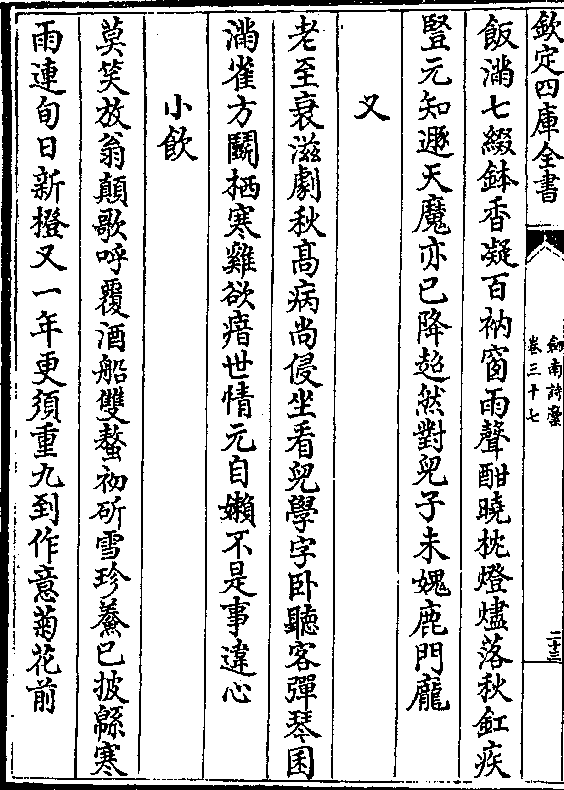 欽定四庫全書
劍南詩稾
卷三十七
二十三
飯滿七綴鉢香凝百衲窗雨聲酣曉枕燈燼落秋釭疾
豎元知遯天魔亦已降超然對兒子未媿鹿門龐
又
老至衰滋劇秋髙病尚侵坐看兒學字卧聽客彈琴囷
滿雀方鬭栖寒雞欲瘖世情元自嬾不是事違心
小飲
莫笑放翁顛歌呼覆酒船雙螯初斫雪珍鮝已披緜寒
雨連旬日新橙又一年更須重九到作意菊花前